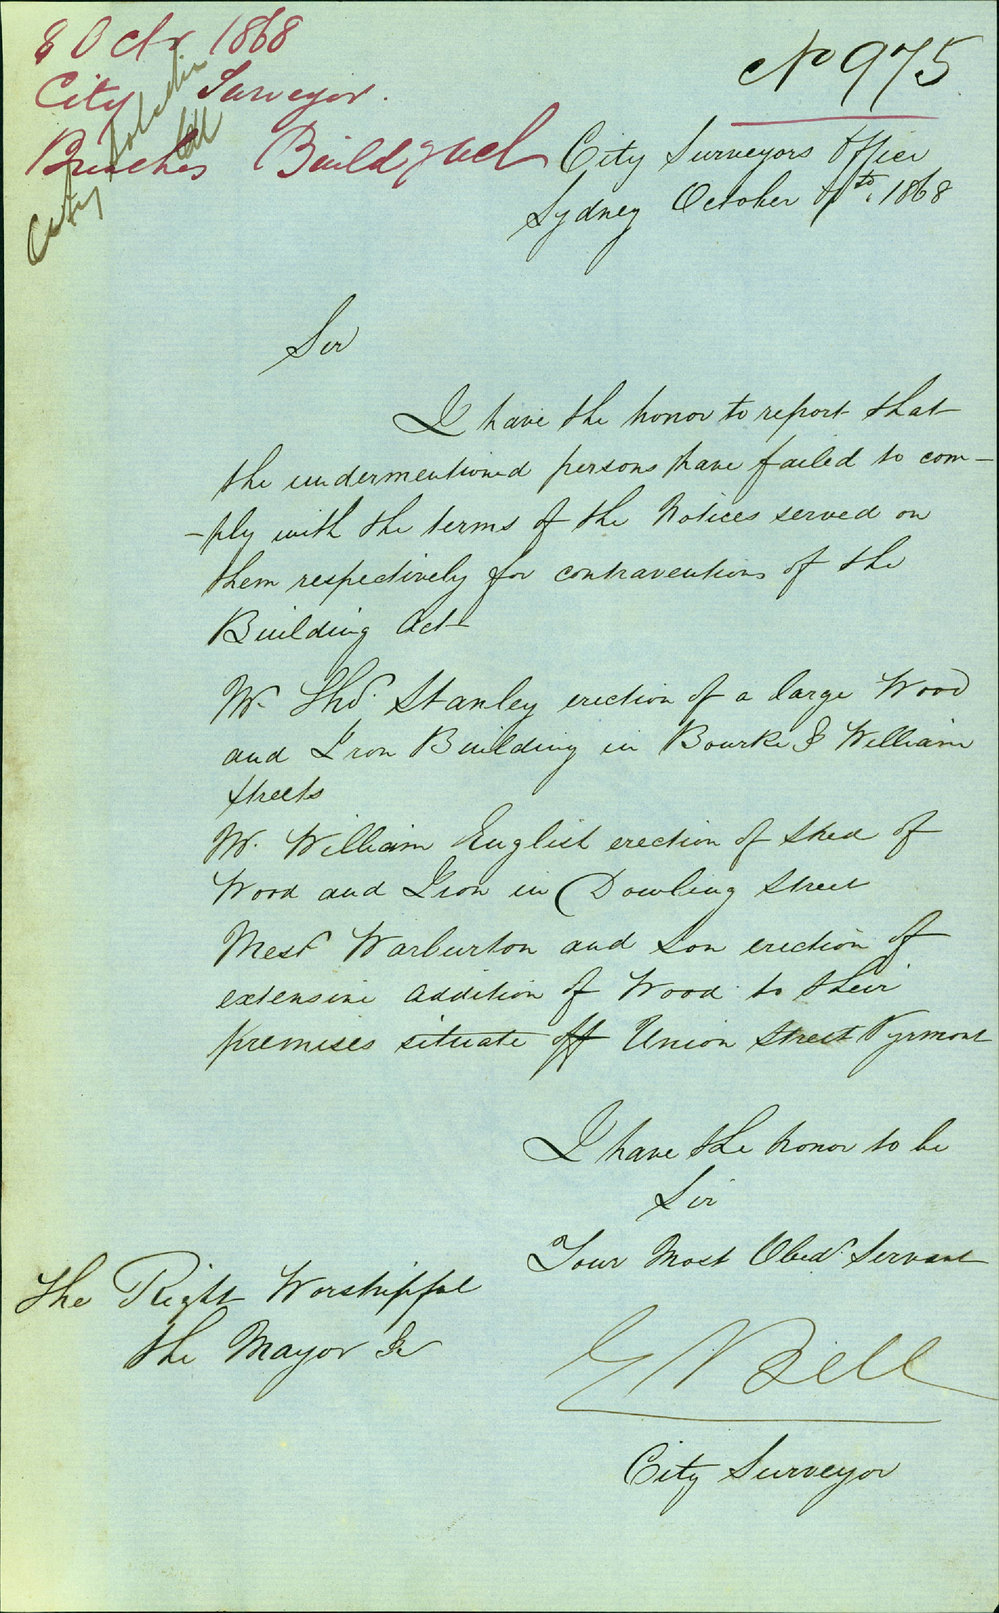 8 Octr 1868
City Surveyor.
Breaches Buildg Act
City Solicitor
No 975
City Surveyors Office
Sydney October 8th. 1868
Sir
I have the honor to report that
the undermentioned persons have failed to com-
-ply with the terms of the Notices served on
them respectively for contraventions of the
Building Act
Mr. Thos. Stanley erection of a large Wood
and Iron Building in Bourke & William
Streets
Mr. William English erection of Shed of
Wood and Iron in Dowling Street
Messrs Warburton and Son erection of
extensive addition of Wood to their
premises situate off Union Street Pyrmont
I have the honor to be
Sir
Your Most Obedt Servant
E Bell
City Surveyor
The Right Worshipful
the Mayor &c